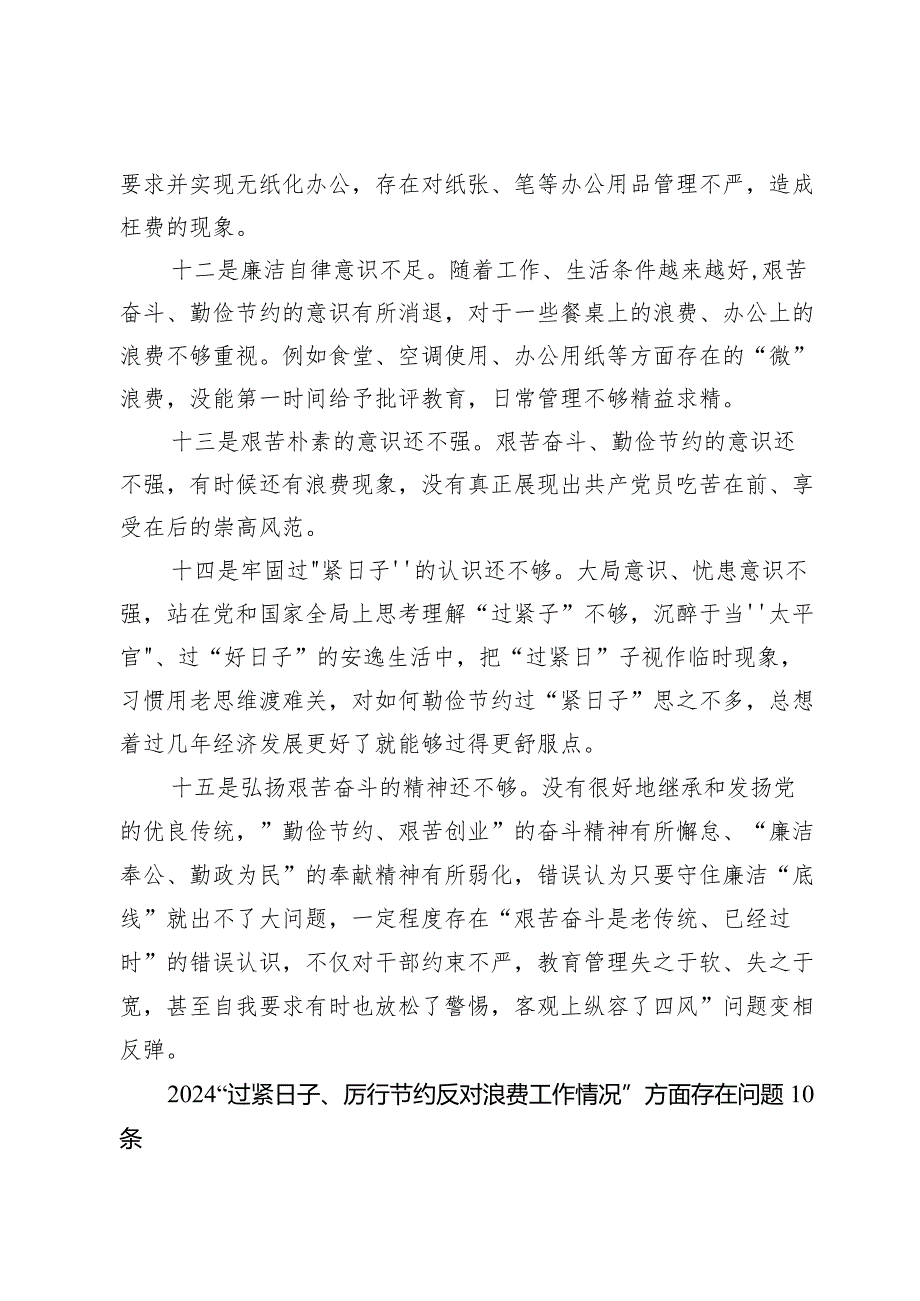 要求并实现无纸化办公，存在对纸张、笔等办公用品管理不严，造成
枉费的现象。
十二是廉洁自律意识不足。随着工作、生活条件越来越好,艰苦
奋斗、勤俭节约的意识有所消退，对于一些餐桌上的浪费、办公上的
浪费不够重视。例如食堂、空调使用、办公用纸等方面存在的“微”
浪费，没能第一时间给予批评教育，日常管理不够精益求精。
十三是艰苦朴素的意识还不强。艰苦奋斗、勤俭节约的意识还
不强，有时候还有浪费现象，没有真正展现出共产党员吃苦在前、享
受在后的崇高风范。
十四是牢固过"紧日子''的认识还不够。大局意识、忧患意识不
强，站在党和国家全局上思考理解“过紧子”不够，沉醉于当''太平
官"、过“好日子”的安逸生活中，把“过紧日”子视作临时现象，
习惯用老思维渡难关，对如何勒俭节约过“紧日子”思之不多，总想
着过几年经济发展更好了就能够过得更舒服点。
十五是弘扬艰苦奋斗的精神还不够。没有很好地继承和发扬党
的优良传统，”勤俭节约、艰苦创业”的奋斗精神有所懈怠、“廉洁
奉公、勤政为民”的奉献精神有所弱化，错误认为只要守住廉洁“底
线”就出不了大问题，一定程度存在“艰苦奋斗是老传统、已经过
时”的错误认识，不仅对干部约束不严，教育管理失之于软、失之于
宽，甚至自我要求有时也放松了警惕，客观上纵容了四风”问题变相
反弹。
2024“过紧日子、厉行节约反对浪费工作情况”方面存在问题10
条